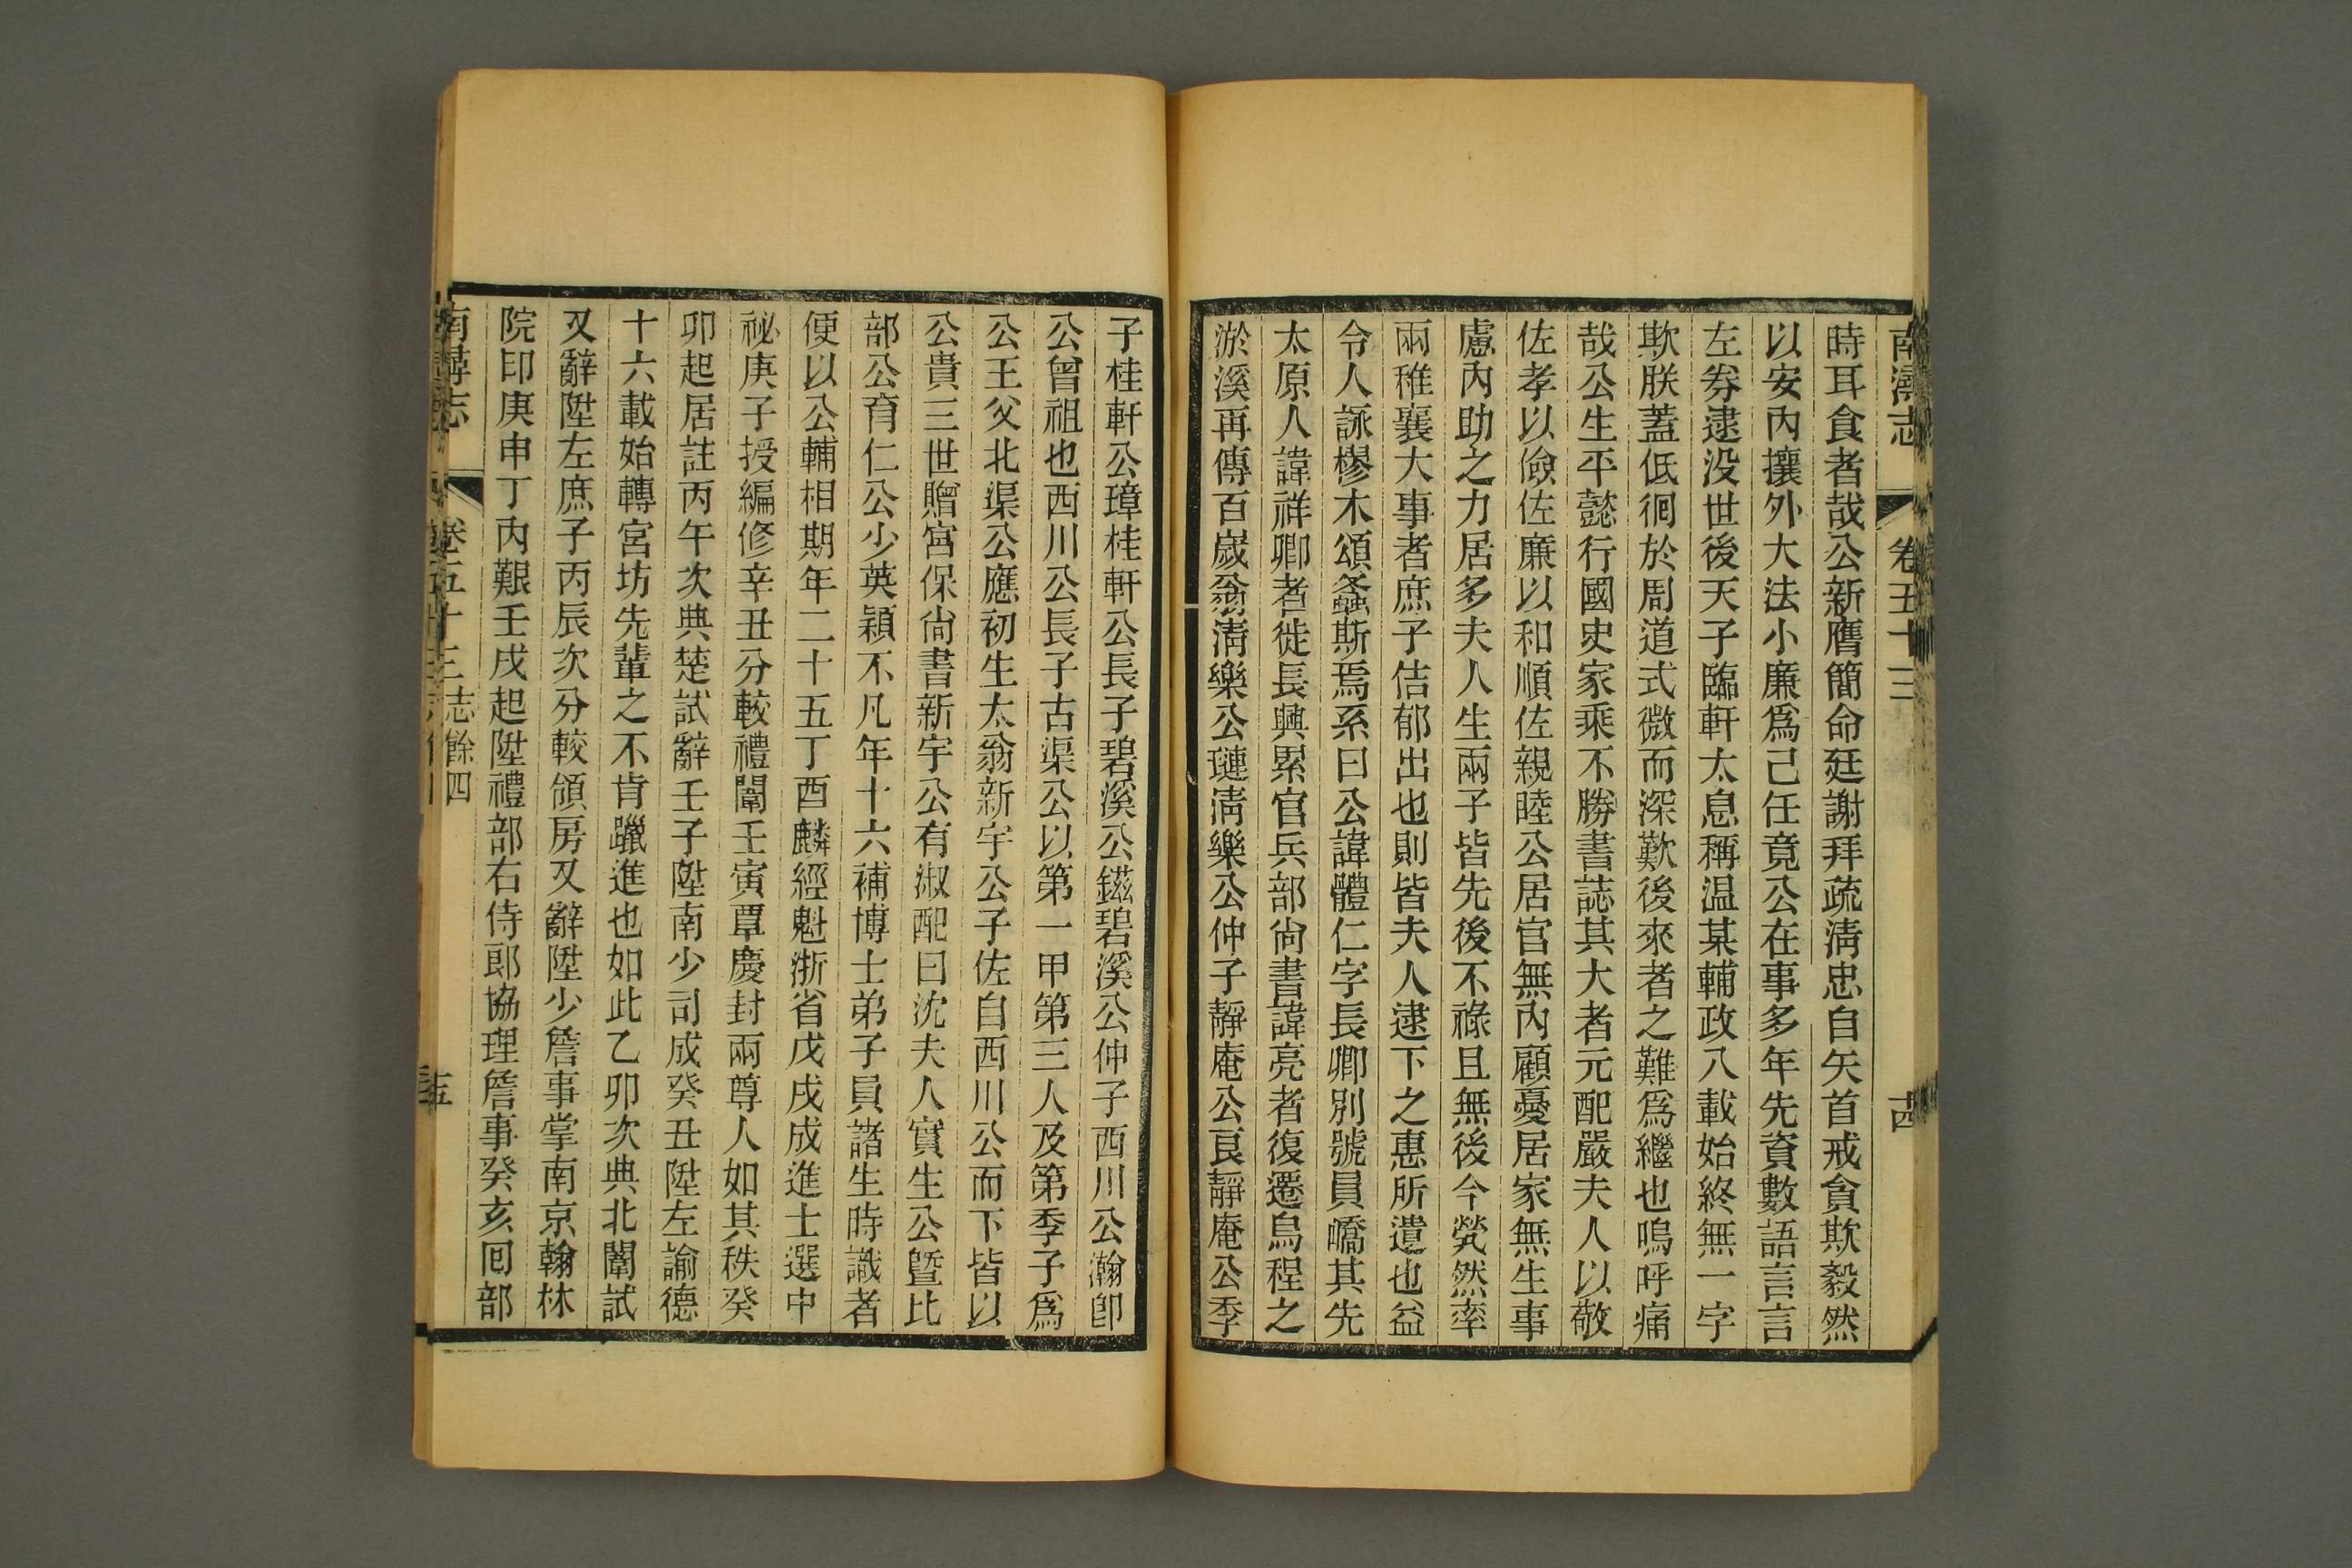 南潯志
卷五十三
十四
時耳食者哉公新膺簡命廷謝拜疏淸忠自矢首戒貪欺毅然
以安內攘外大法小廉爲己任竟公在事多年先資數語言言
左券逮没世後天子臨軒太息稱温某輔政八載始終無一字
欺朕蓋低徊於周道式微而深歎後來者之難爲繼也嗚呼痛
哉公生平懿行國史家乘不勝書誌其大者元配嚴夫人以敬
佐孝以儉佐廉以和順佐親睦公居官無內顧憂居家無生事
慮內助之力居多夫人生兩子皆先後不祿且無後今煢然率
兩稚襄大事者庶子佶郁出也則皆夫人逮下之惠所遺也益
令人詠樛木頌螽斯焉系曰公諱體仁字長卿別號員嶠其先
太原人諱祥卿者徙長興累官兵部尙書諱亮者復遷烏程之
淤溪再傳百歲翁淸樂公璉淸樂公仲子靜庵公良靜庵公季
子桂軒公璋桂軒公長子碧溪公鎡碧溪公仲子西川公瀚卽
公曾祖也西川公長子古渠公以第一甲第三人及第季子爲
公王父北渠公應初生太翁新宇公子佐自西川公而下皆以
公貴三世贈宮保尙書新宇公有淑配曰沈夫人實生公暨比
部公育仁公少英穎不凡年十六補博士弟子員諸生時識者
便以公輔相期年二十五丁酉麟經魁浙省戊戌成進士選中
祕庚子授編修辛丑分較禮闈壬寅覃慶封兩尊人如其秩癸
卯起居註丙午次典楚試辭壬子陞南少司成癸丑陞左諭德
十六載始轉宮坊先輩之不肯躐進也如此乙卯次典北闈試
又辭陞左庶子丙辰次分較領房又辭陞少詹事掌南京翰林
院印庚申丁內艱壬戌起陞禮部右侍郞協理詹事癸亥囘部
南潯志
卷五十三
志餘四
十五